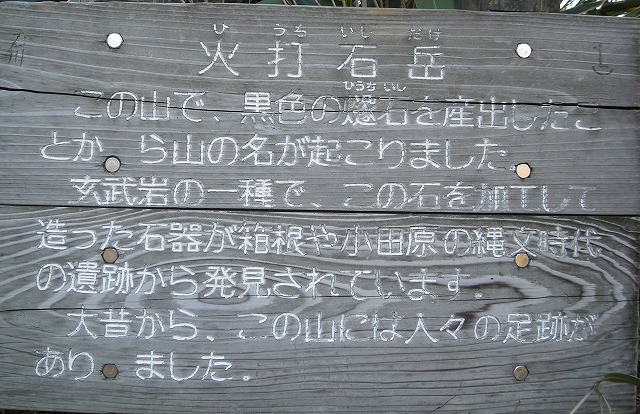 ひ うち いし だけ
火打石岳
ひうち いし
この山で、黒色の燧石を産出したこ
とから山の名が起こりました。
玄武岩の一種で、この石を加工して
造った石器が箱根や小田原の縄文時代
の遺跡から発見されています。
大昔から、この山には人々の足跡が
ありました。